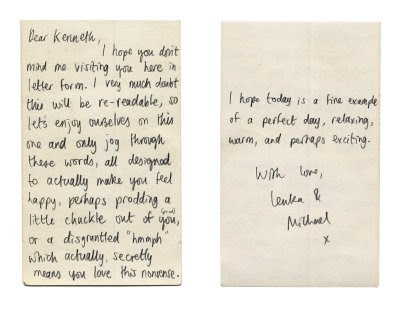 Dear Kenneth,
I hope you don't
mind me visiting you here in
letter form. I very much doubt
this will be re-readable, so
let's enjoy ourselves on this
one and only jog through
these words, all designed
to actually make you feel
happy, perhaps prodding a
little chuckle out of you,
or a disgrantled "hmmph"
which actually, secretly
means you love this nonsense.
I hope today is a fine example
of a perfect day, relaxing,
warm, and perhaps exciting.
With love,
Lenka &
Michael
x